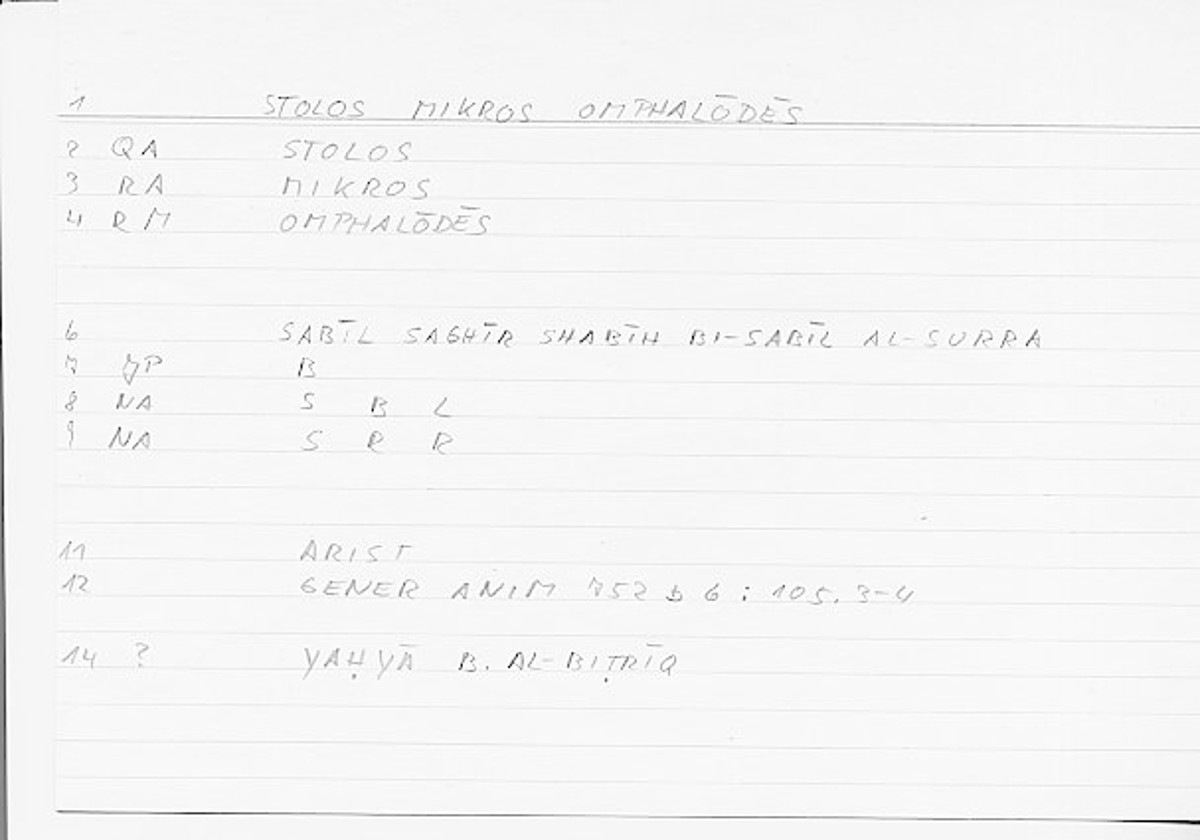 1 STOLOS MIKROS OMPHALŌDĒS
2 QA STOLOS
3 RA MIKROS
4 RM OMPHALŌDĒS
6 SABĪL SAGHĪR SHABĪH BI-SABĪL AL-SURRA
7 JP B
8 NA S B L
9 NA S R R
11 ARIST
12 GENER ANIM 752 b 6 : 105. 3-4
14 ? YAḤYĀ B. AL-BIṬRĪQ